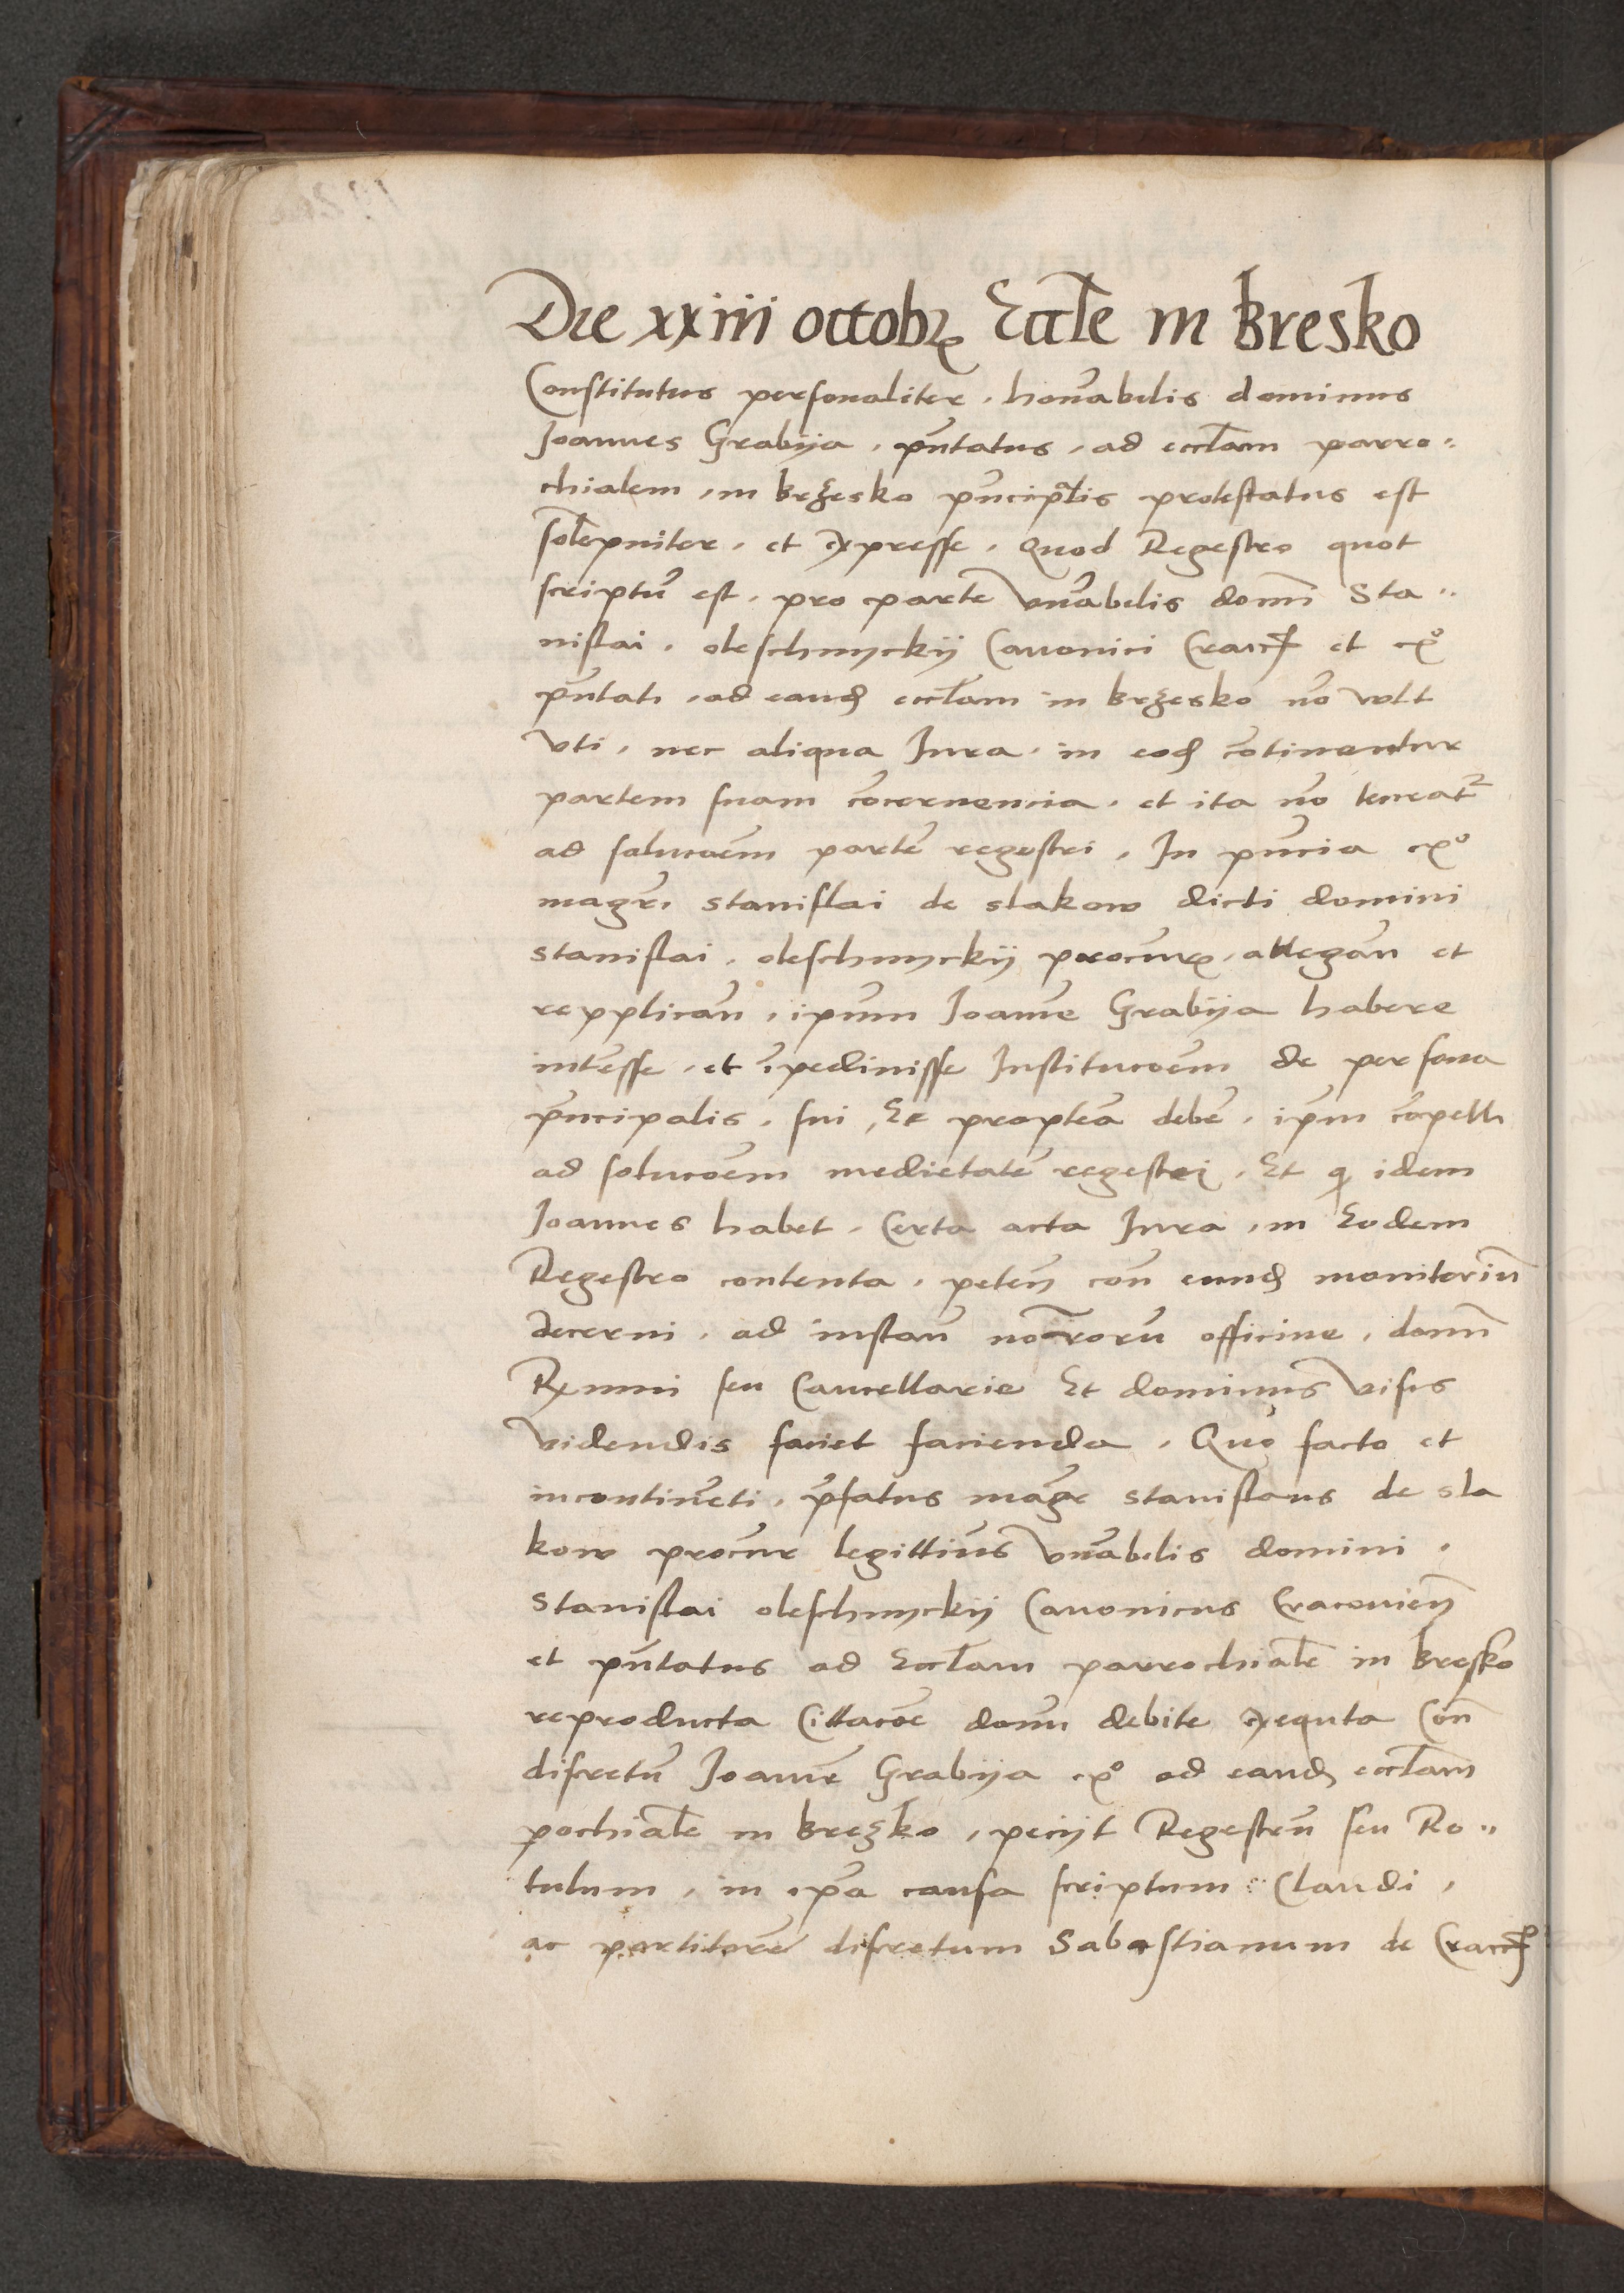 Die xxiii octobrꝭ Eccl̄e in Bresko
Constitutus personaliter, hono͞rabilis dominus
Joannes Grabÿa, pn̄tatus, ad eccl̄am parro..
chialem, in brzesko principalis protestatus est
sol̄epniter, et expresse, Quod Regestro quot
scriptū est, pro parte Vn̄abilis domī Sta..
nislai, oleschnyckÿ Canonici Cracꝭ et exº
pn̄tati, ad eandꝫ eccl̄am in brzesko nō vult
vti, nec aliqua Jura, in eodꝫ cōtinentur
partem suam cōcernencia, et ita nō teneat᷑
ad solucōem partē regestri, In pn̄cia exº
magr̄i stanislai de slakow dicti domini
stanislai, oleschnyckÿ procurꝭ, allegan̄ et
repplican̄, ipsum Joannē Grabÿa habere
intēsse, et īpedinisse Institucōem de persona
pn̄cipalis, sui, Et propt̄ea debē, ip̄m cōpelli
ad solucōem medietatē regestri, Et ꝙ idem
Joannes habet, Certa acta Jura, in Eodem
Regestro contenta, peten̄ con̄ eundꝫ monitoriū
decerni, ad instan̄ no͞rorū officine, domī
Rx̄mi seu Cancellarie Et dominus visis
videndis faciet facienda, Quo facto et
incontinēti, p̄fatus magr̄ stanislaus de sla
kow procur̄ legittim̄us Vn̄abilis domini,
Stanislai oleschnyckÿ Canonicus Cracovien̄
et pn̄tatus ad Eccl̄am parrochial̄e in bresko
reproducta Cittacōe domī debite exequta Con̄
discretū Joannē Grabÿa exº ad eandꝫ eccl̄am
ꝑochial̄e in brezko, peciÿt Regestrū seu Ro..
tulum, in ip̄a causa scriptum Claudi,
ac partitorē discretum Sabastianum de Cracꝭ